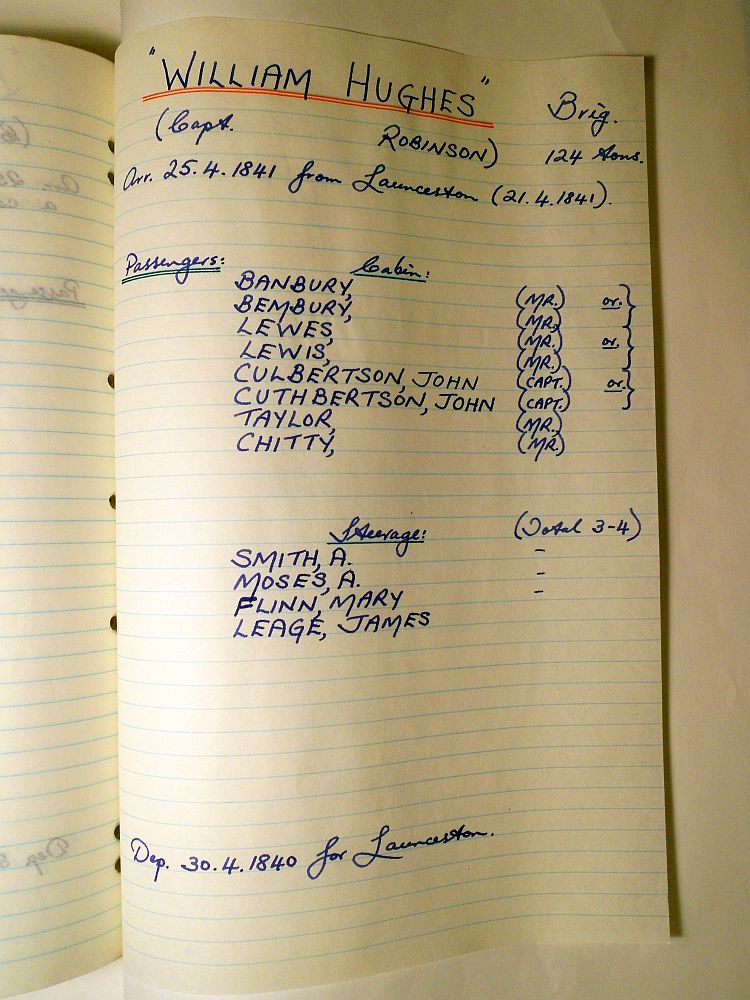 "WILLIAM HUGHES" Brig.
(Capt. ROBINSON) 124 tons.
Arr. 25.4.1841 from Launceston (21.4.1841).
Passengers: Cabin:
BANBURY, (MR.) or.}
BEMBURY, (MR.)
LEWES, (MR.) or.}
LEWIS, (MR.)
CULBERTSON, JOHN (CAPT.) or.}
CUTHBERTSON, JOHN (CAPT.)
TAYLOR, (MR.)
CHITTY, (MR.)
Steerage: (Total 3-4)
SMITH, A. -
MOSES, A. -
FLINN, MARY -
LEAGE, JAMES
Dep. 30.4.1840 for Launceston.